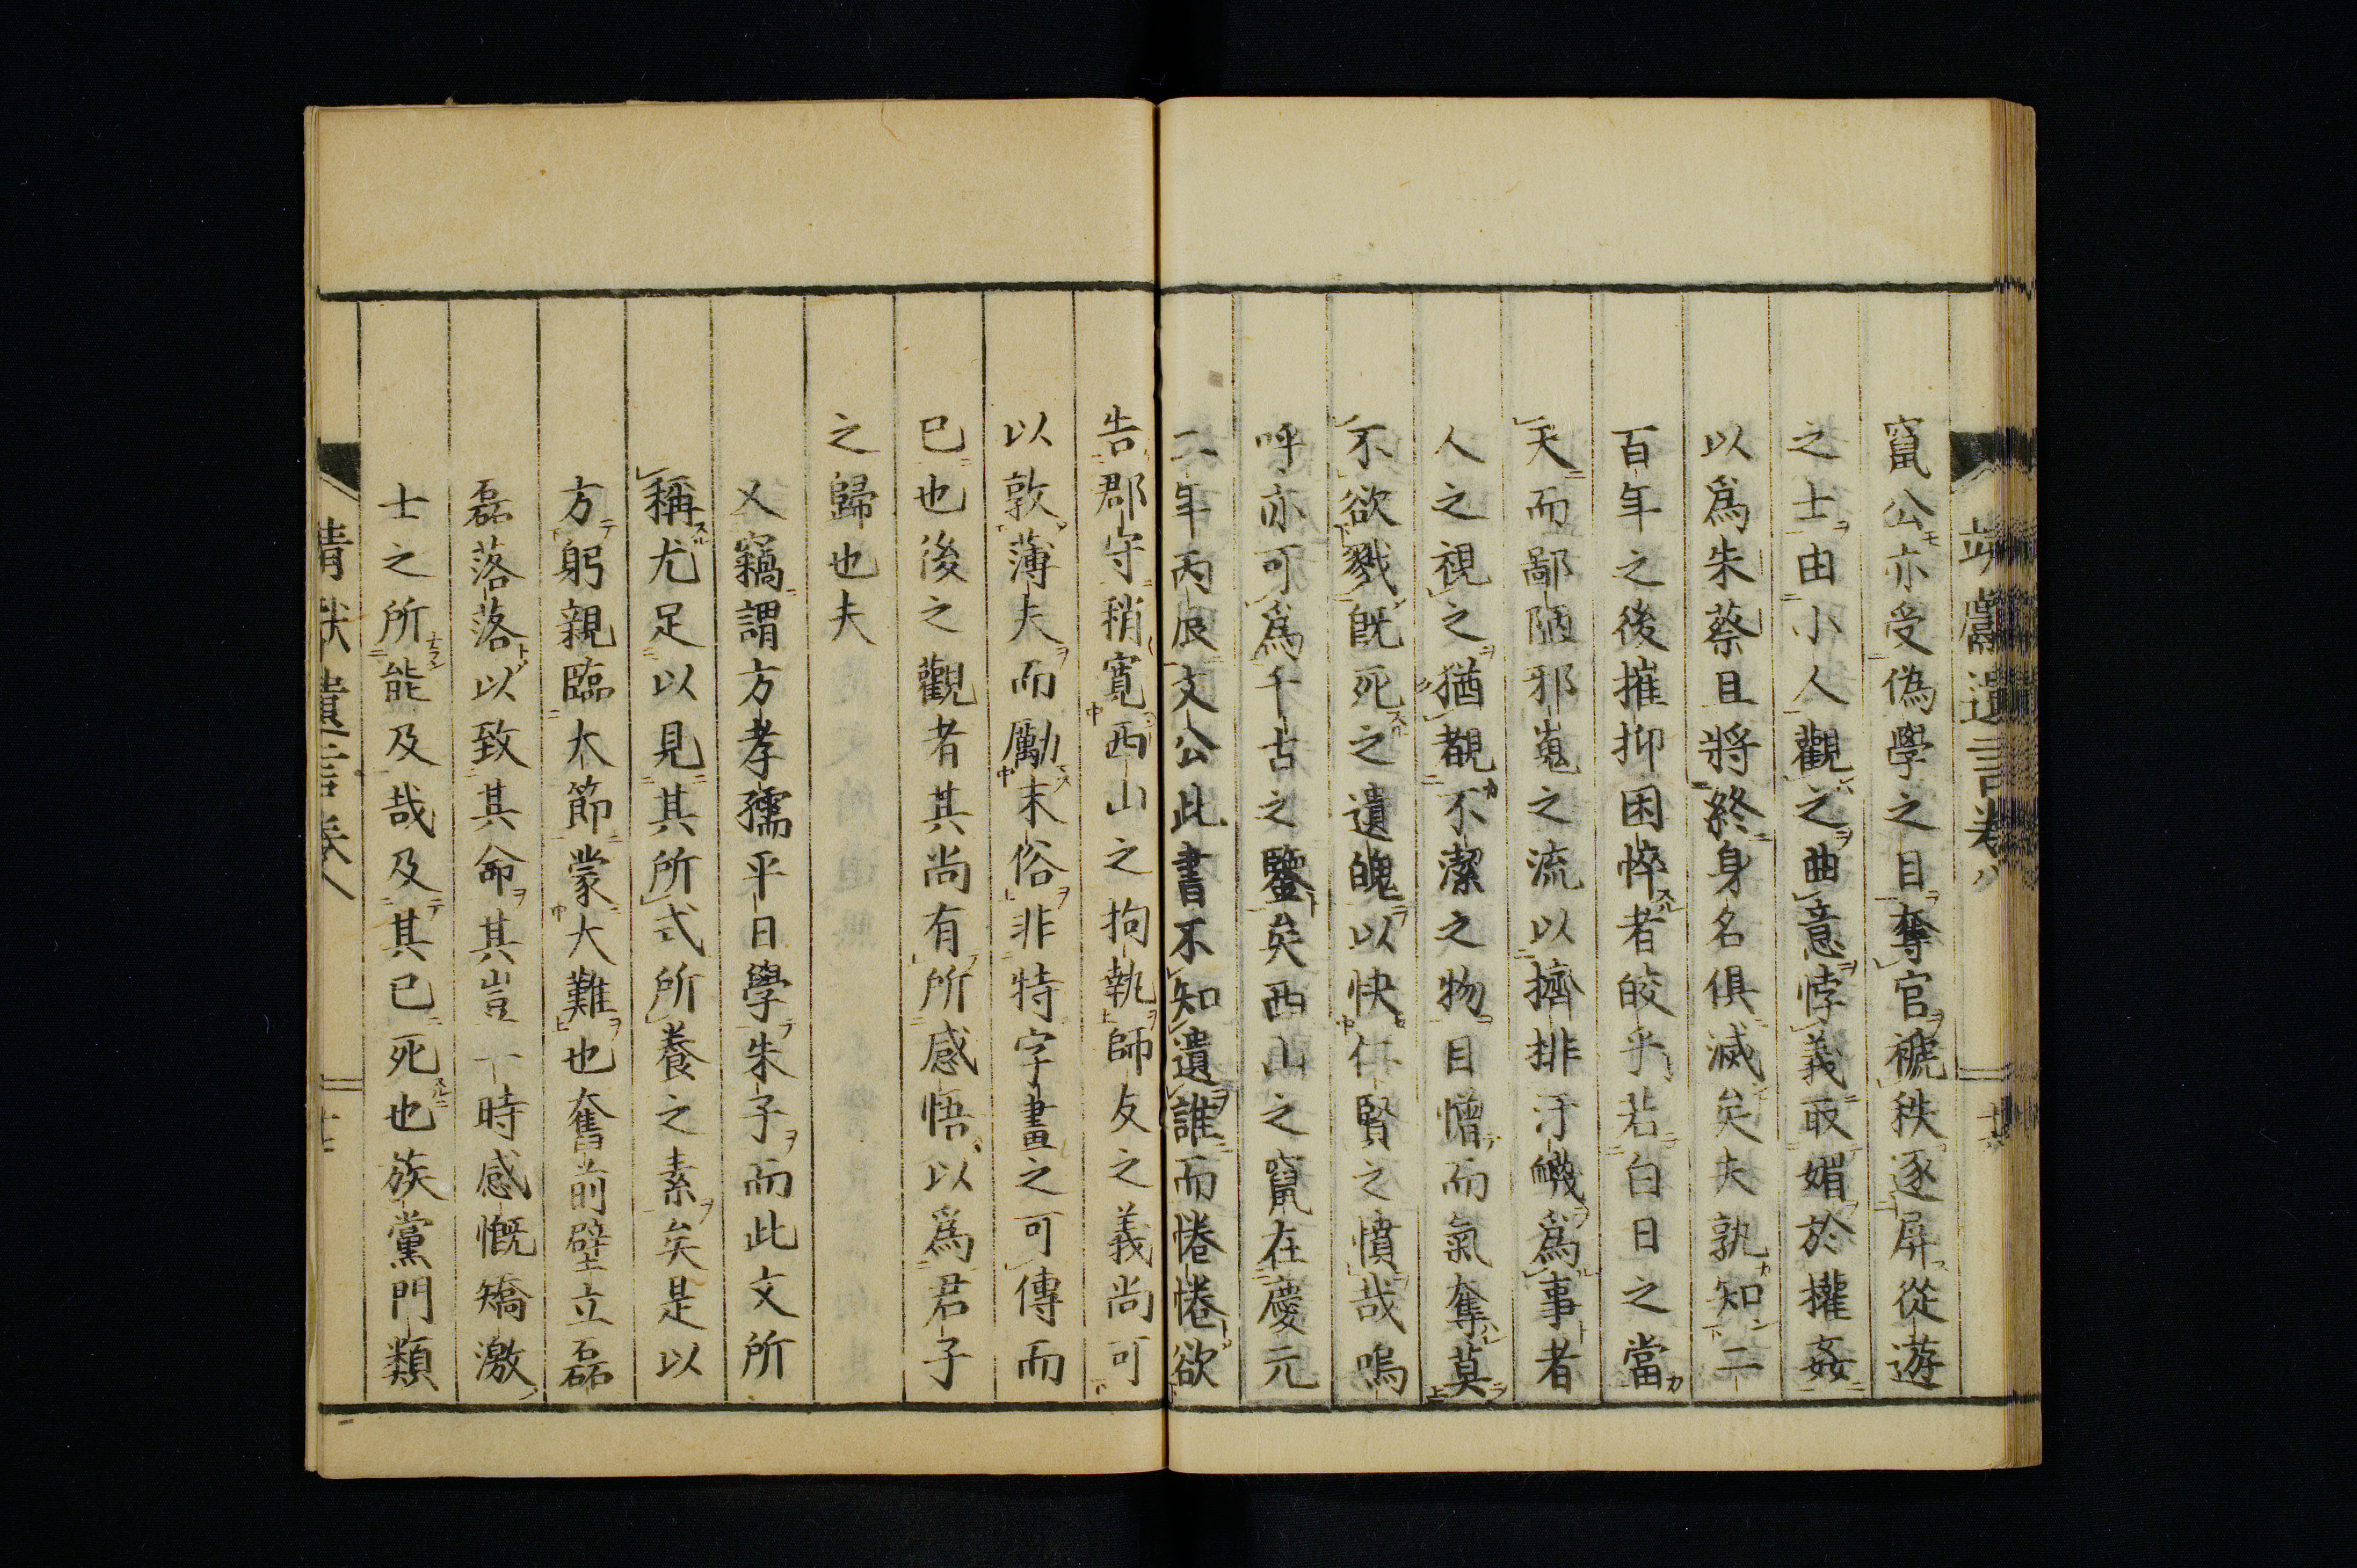 靖獻遺言卷八
竄公亦受偽學之目奪官褫秩逐屏從遊
之士由小人觀之曲意悖義取媚於權姦
以爲朱蔡且將終身名俱滅矣夫孰知二
百年之後摧抑困悴者皎乎若白日之當
天而鄙陋邪嵬之流以擠排汙衊爲事者
人之視之猶覩不潔之物目憎而氣奪莫
不欲戮既死之遺魄以快仁賢之憤哉嗚
呼亦可爲千古之鑒矣西山之竄在慶元
二年丙辰文公此書不知遺誰而惓惓欲
告郡守稍寛西山之拘執師友之義尚可
以敦薄夫而勵末俗非特字畫之可傳而
已也後之觀者其尚有所感悟以爲君子
之歸也夫
又竊謂方孝孺平日學朱子而此文所
稱尤足以見其所式所養之素矣是以
方躬親臨大節蒙大難也奮前壁立磊
磊落落以致其命其豈一時感慨矯激
士之所能及哉及其已死也族黨門類
靖獻遺言卷八